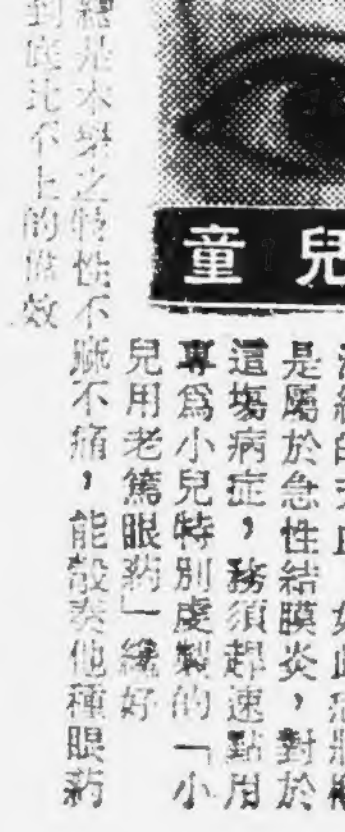 兒童
是屬於急性結膜炎，對於
這塲病症，務須趕速點用
專爲小兒特別虔製的「小
兒用老篤眼葯」纔好
總是本藥之特性不痲不痛，能彀奏他種眼葯
到底比不上的偉效